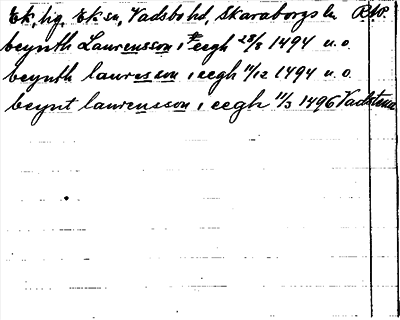 Ek, hg, Ek sn, Vadsbo hd, Skaraborgs ln RAP.
beynth Laurensson i eegh 28/8 1494 u.o.
beynth lauresson i eegh 11/12 1494 u.o.
beynt laurensson i eegh 11/3 1496 Vadstena